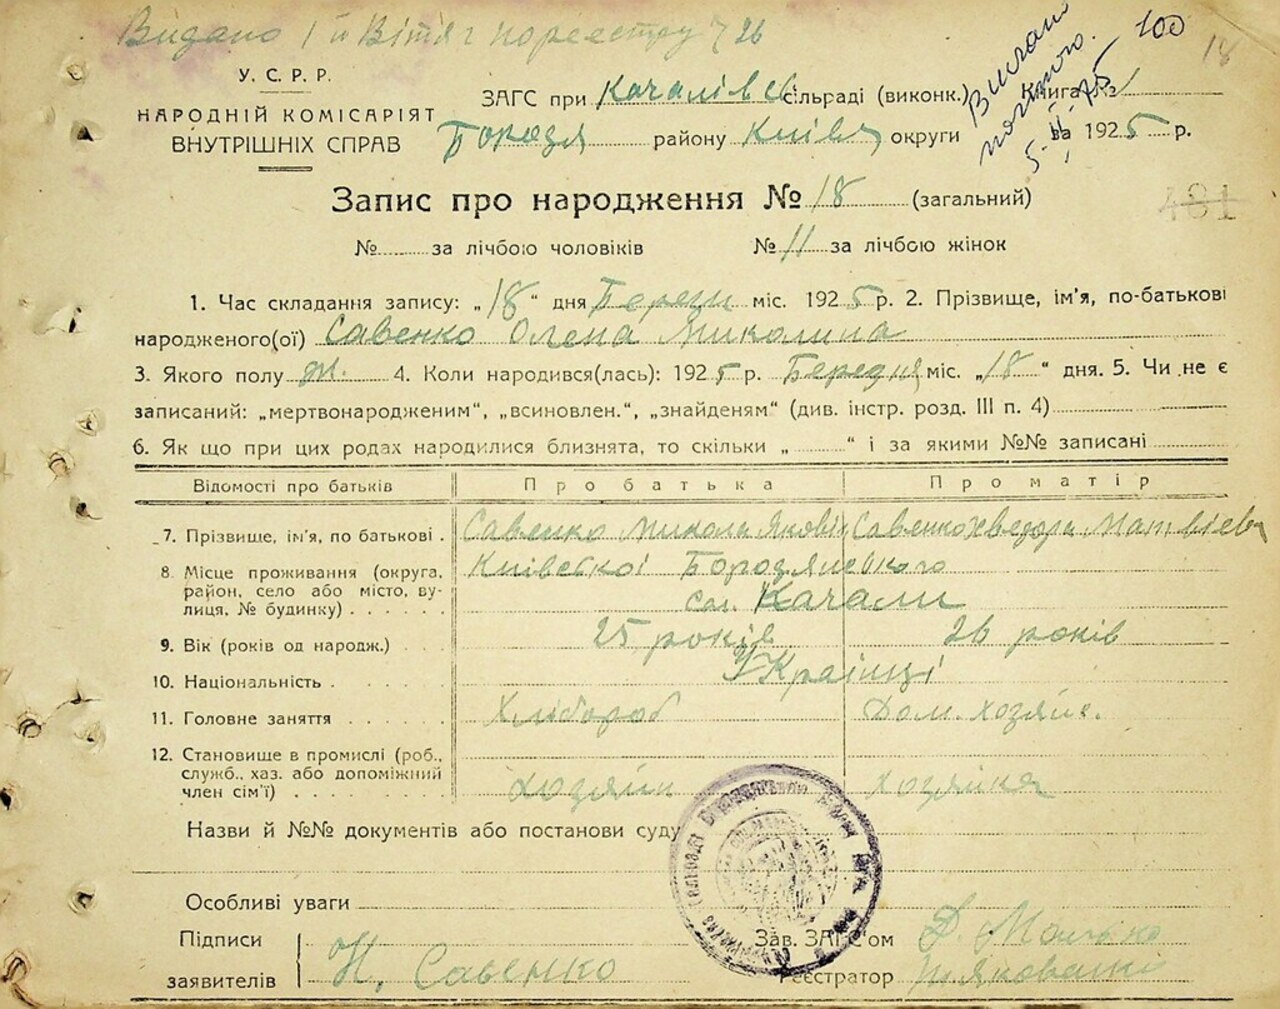 Видано 1 й Вітяг по реєстру 726
100
18
У. С. Р. Р.
НАРОДНІЙ КОМІСАРІЯТ
ВНУТРІШНІХ СПРАВ
ЗАГС при Качалівс сільраді (виконк.) Книга №
Бородя району Київ округи за 1925 р.
Запис про народження № 18 (загальний)
481
№ за лічбою чоловіків № 11 за лічбою жінок
1. Час складання запису: „18“ дня Берези міс. 1925 р. 2. Прізвище, ім'я, по-батькові
народженого(ої) Савенко Олена Миколина
3. Якого полу ж. 4. Коли народився(лась): 1925 р. Березня міс. „18“ дня. 5. Чи не є
записаний: „мертвонародженим“, „всиновлен.“, „знайденям“ (див. інстр. розд. III п. 4)
6. Як що при цих родах народилися близнята, то скільки „ “ і за якими №№ записані
Відомості про батьків Про батька Про матір
7. Прізвище, ім'я, по батькові Савенко Микола Яковів Савенко Хведора Матвієв
8. Місце проживання (округа, Київської Бородянського
район, село або місто, ву-
лиця, № будинку) Качали
9. Вік (років од народж.) 25 років 26 років
10. Національність Українці
11. Головне заняття Хлібороб Дом. хозяйс.
12. Становище в промислі (роб.,
служб., хаз. або допоміжний
член сім'ї) хозяїн хозяйка
Назви й №№ документів або постанови суду
Особливі уваги
Підписи Зав. ЗАГС'ом
заявителів Н. Савенко Реєстратор